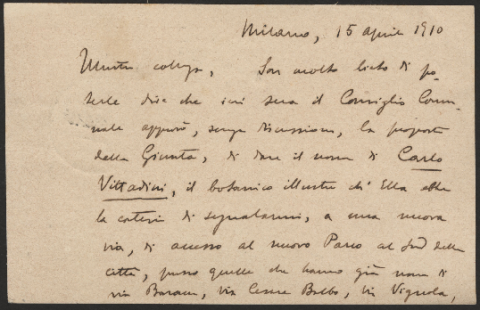 Milano, 15 aprile 1910
Illustre collega, Son molto lieto di po-
terle dire che ieri sera il Consiglio Comu-
nale approvò, senza discussione, la proposta
della Giunta, di dare il nome di Carlo
Vittadini, il botanico illustre ch'Ella ebbe
la cortesia di segnalarmi, a una nuova
via, di accesso al nuovo Parco al Sud della
città, presso quelle che hanno già nome di
via Baracc, via Cesare Balbo, via Vignola,